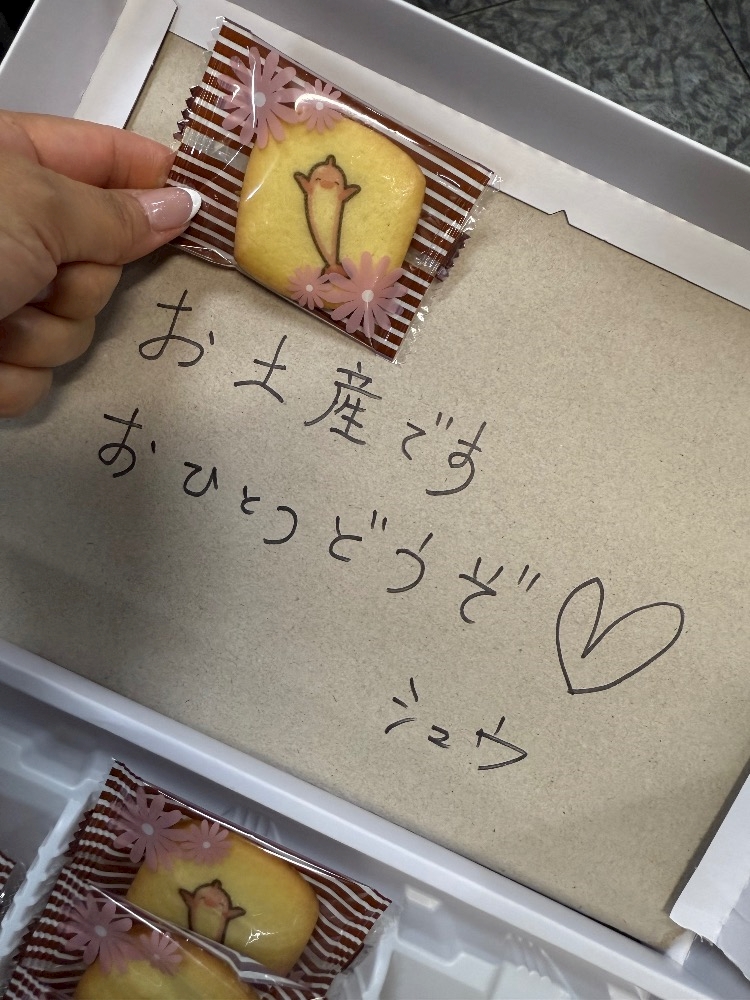 お土産です
おひとつどうぞ♡
シュウ